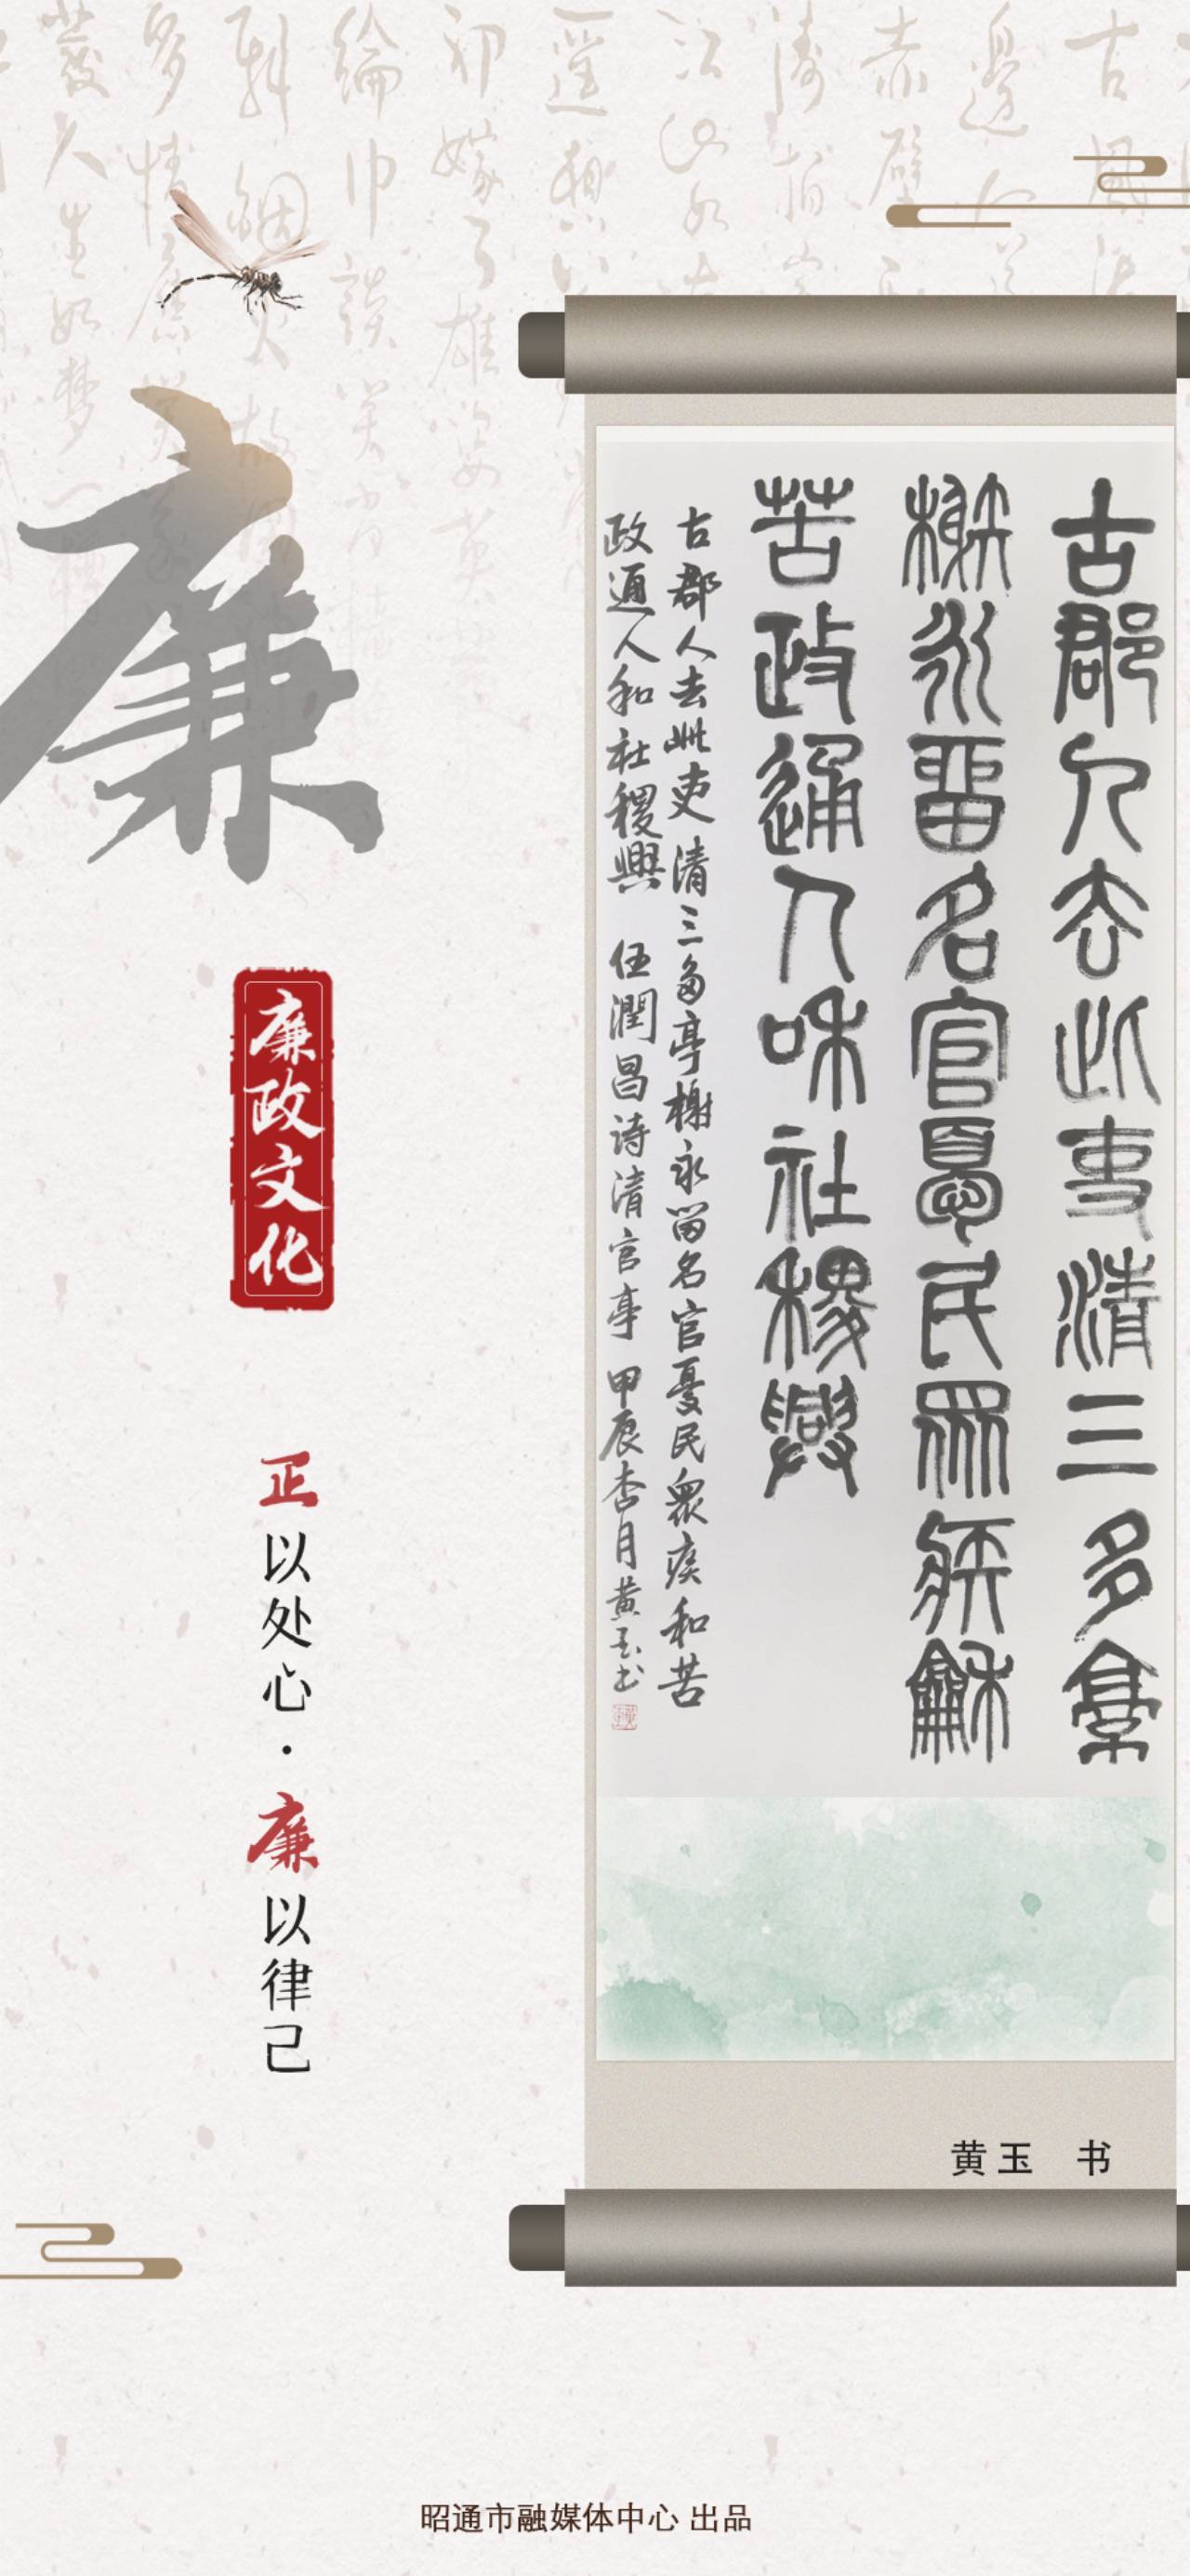 廉
廉政文化
正以处心·廉以律己
古郡人去此吏清三多亭
榭永留名官憂民眾疾龢
苦政通人和社稷興
古郡人去此吏清三多亭榭永留名官憂民眾疾和苦
政通人和社稷興 伍潤昌诗清官亭 甲辰杏月黄玉书
黄玉 书
昭通市融媒体中心 出品